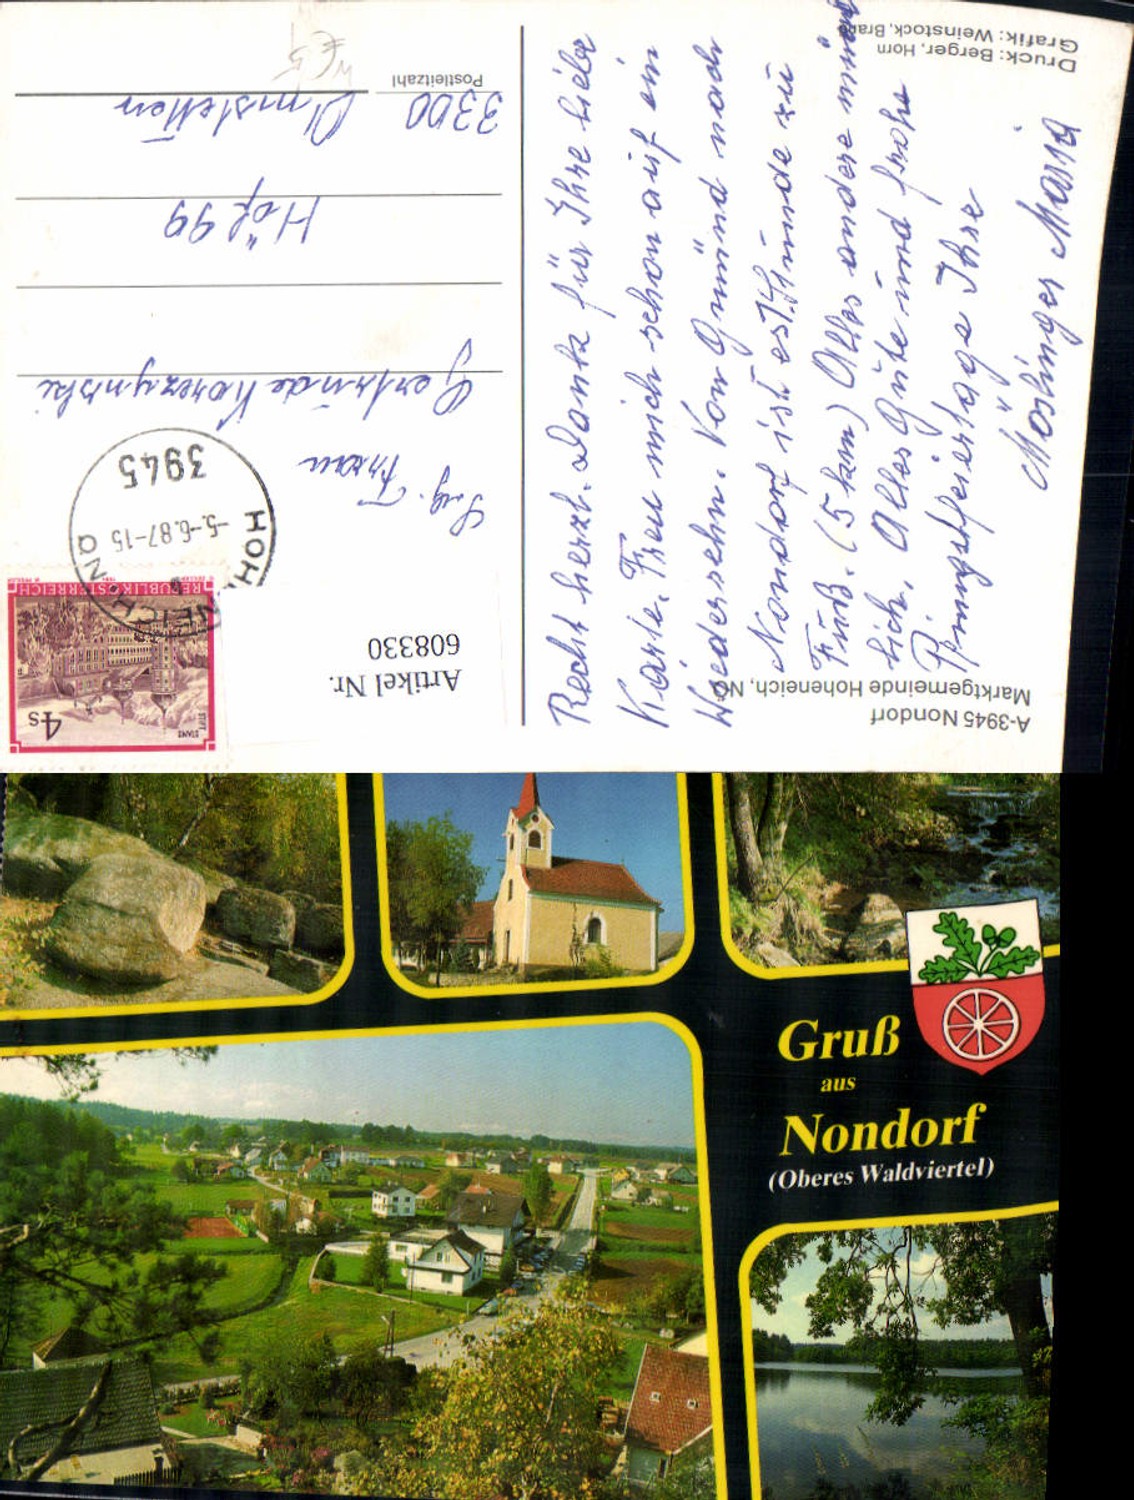 A-3945 Nondorf
Marktgemeinde Hoheneich, NÖ
Recht herzl. Dank für Ihre liebe
Karte. Freu mich schon auf ein
Wiedersehn. Von Gmünd nach
Nondorf ist es 1 Stunde zu
Fuß. (5 km) Alles andere münd
lich. Alles Gute und frohe
Pfingstfeiertage Ihre
Möslinger Maria
Druck: Berger, Horn
Grafik: Weinstock, Brand
Artikel Nr.
608330
4s
STIFT
STAMS
REPUBLIK ÖSTERREICH
HOHENEICH, NÖ
-5.-6.87-15
3945
Frau
Gertrude Korczynski
Höf 99
3300 Amstetten
Postleitzahl
Gruß
aus
Nondorf
(Oberes Waldviertel)